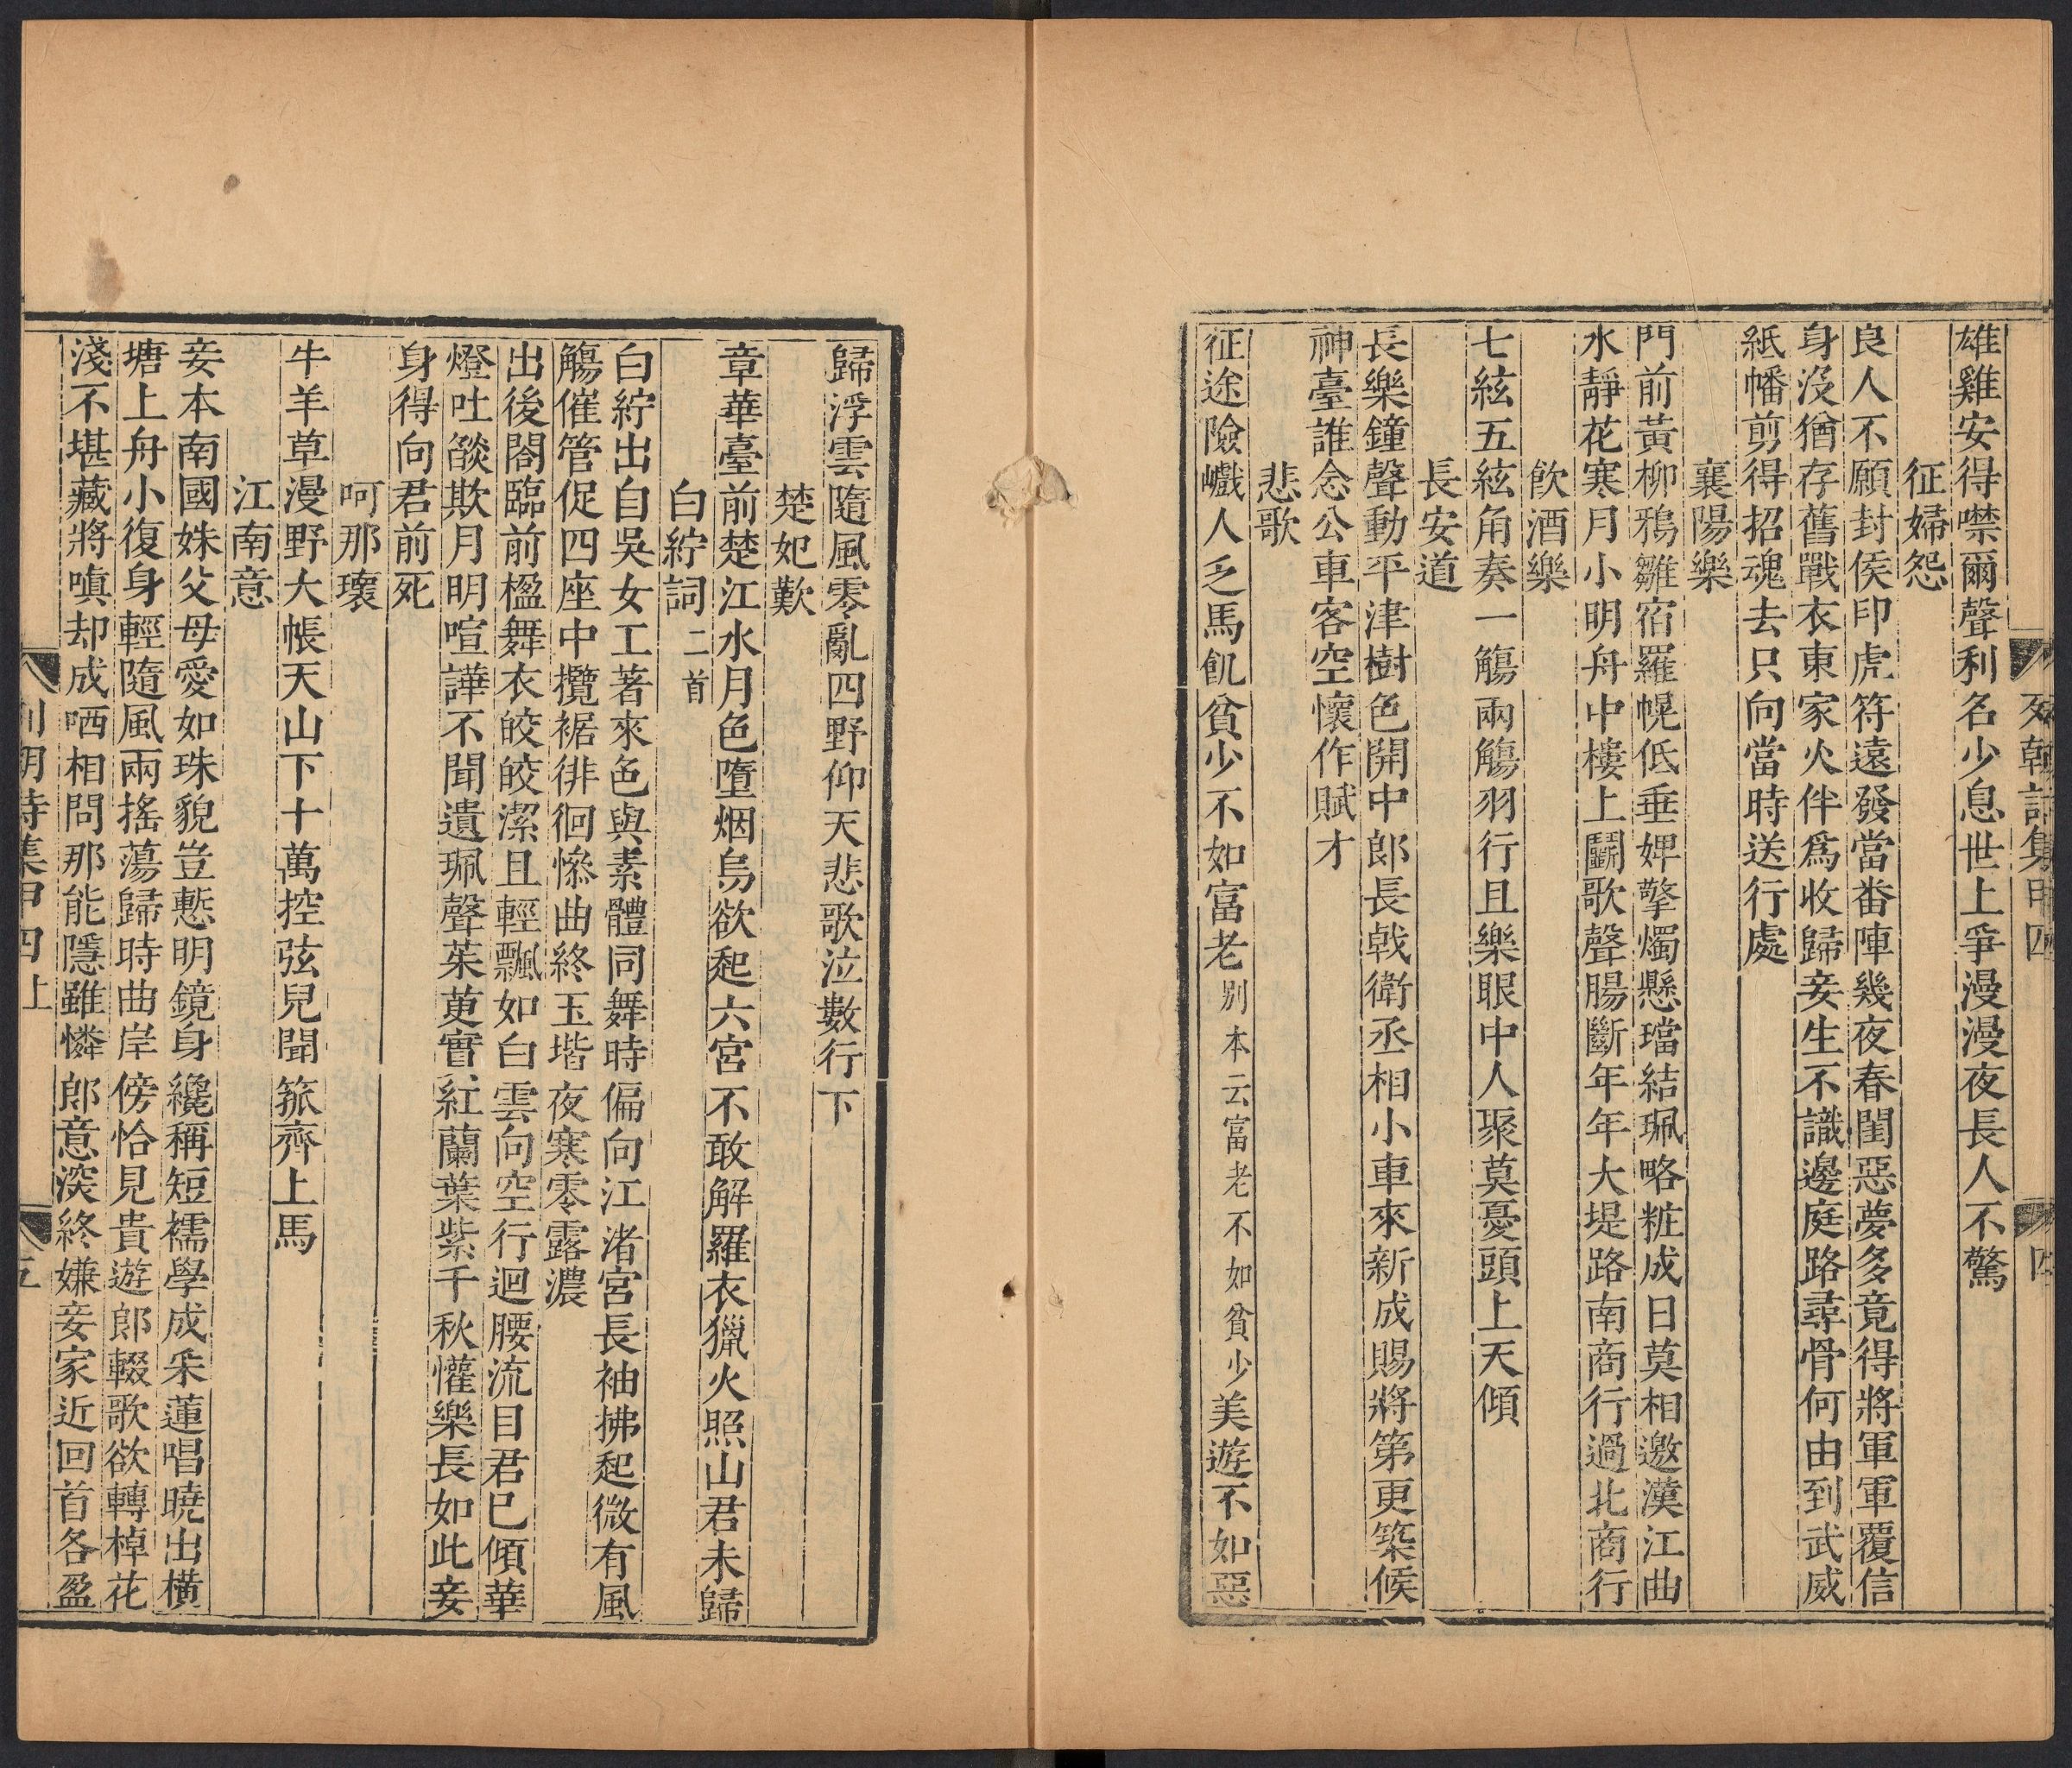 列朝詩集甲四
四
雄雞安得噤爾聲利名少息世上爭漫漫夜長人不驚
征婦怨
良人不願封侯印虎符遠發當畨陣幾夜春閨惡夢多竟得將軍軍覆信
身沒猶存舊戰衣東家火伴爲收歸妾生不識邊庭路尋骨何由到武威
紙幡剪得招魂去只向當時送行處
襄陽樂
門前黃柳鴉雛宿羅幌低垂婢擎燭懸璫結珮略粧成日莫相邀漢江曲
水靜花寒月小明舟中樓上鬬歌聲腸斷年年大堤路南商行過北商行
飲酒樂
七絃五絃角奏一觴兩觴羽行且樂眼中人聚莫憂頭上天傾
長安道
長樂鐘聲動平津樹色開中郞長戟衛丞相小車來新成賜將第更築候
神臺誰念公車客空懷作賦才
悲歌
征途險巇人乏馬飢貧少不如富老別本云富老不如貧少美遊不如惡
歸浮雲隨風零亂四野仰天悲歌泣數行下
楚妃歎
章華臺前楚江水月色墮烟烏欲起六宮不敢解羅衣獵火照山君未歸
白紵詞二首
白紵出自吳女工著來色與素體同舞時偏向江渚宮長袖拂起微有風
觴催管促四座中攬裾徘徊慘曲終玉堦夜寒零露濃
出後閤臨前楹舞衣皎皎潔且輕飄如白雲向空行迴腰流目君已傾華
燈吐燄欺月明喧譁不聞遺珮聲茱萸實紅蘭葉紫千秋懽樂長如此妾
身得向君前死
呵那瓌
牛羊草漫野大帳天山下十萬控弦兒聞箛齊上馬
江南意
妾本南國姝父母愛如珠貌豈慙明鏡身纔稱短襦學成采蓮唱曉出橫
塘上舟小復身輕隨風兩搖蕩歸時曲岸傍恰見貴遊郞輟歌欲轉棹花
淺不堪藏將嗔却成哂相問那能隱雖憐郞意深終嫌妾家近回首各盈
列朝詩集甲四上
五